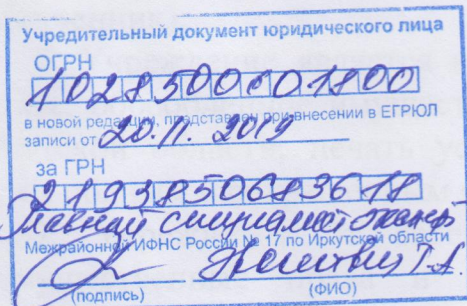 Учредительный документ юридического лица
ОГРН
1028500601800
в новой редакции, представлен при внесении в ЕГРЮЛ
записи от 20.11.2019
за ГРН
2193850683618
Главный специалист эксперт
Межрайонной ИФНС России № 17 по Иркутской области
(подпись) (ФИО)